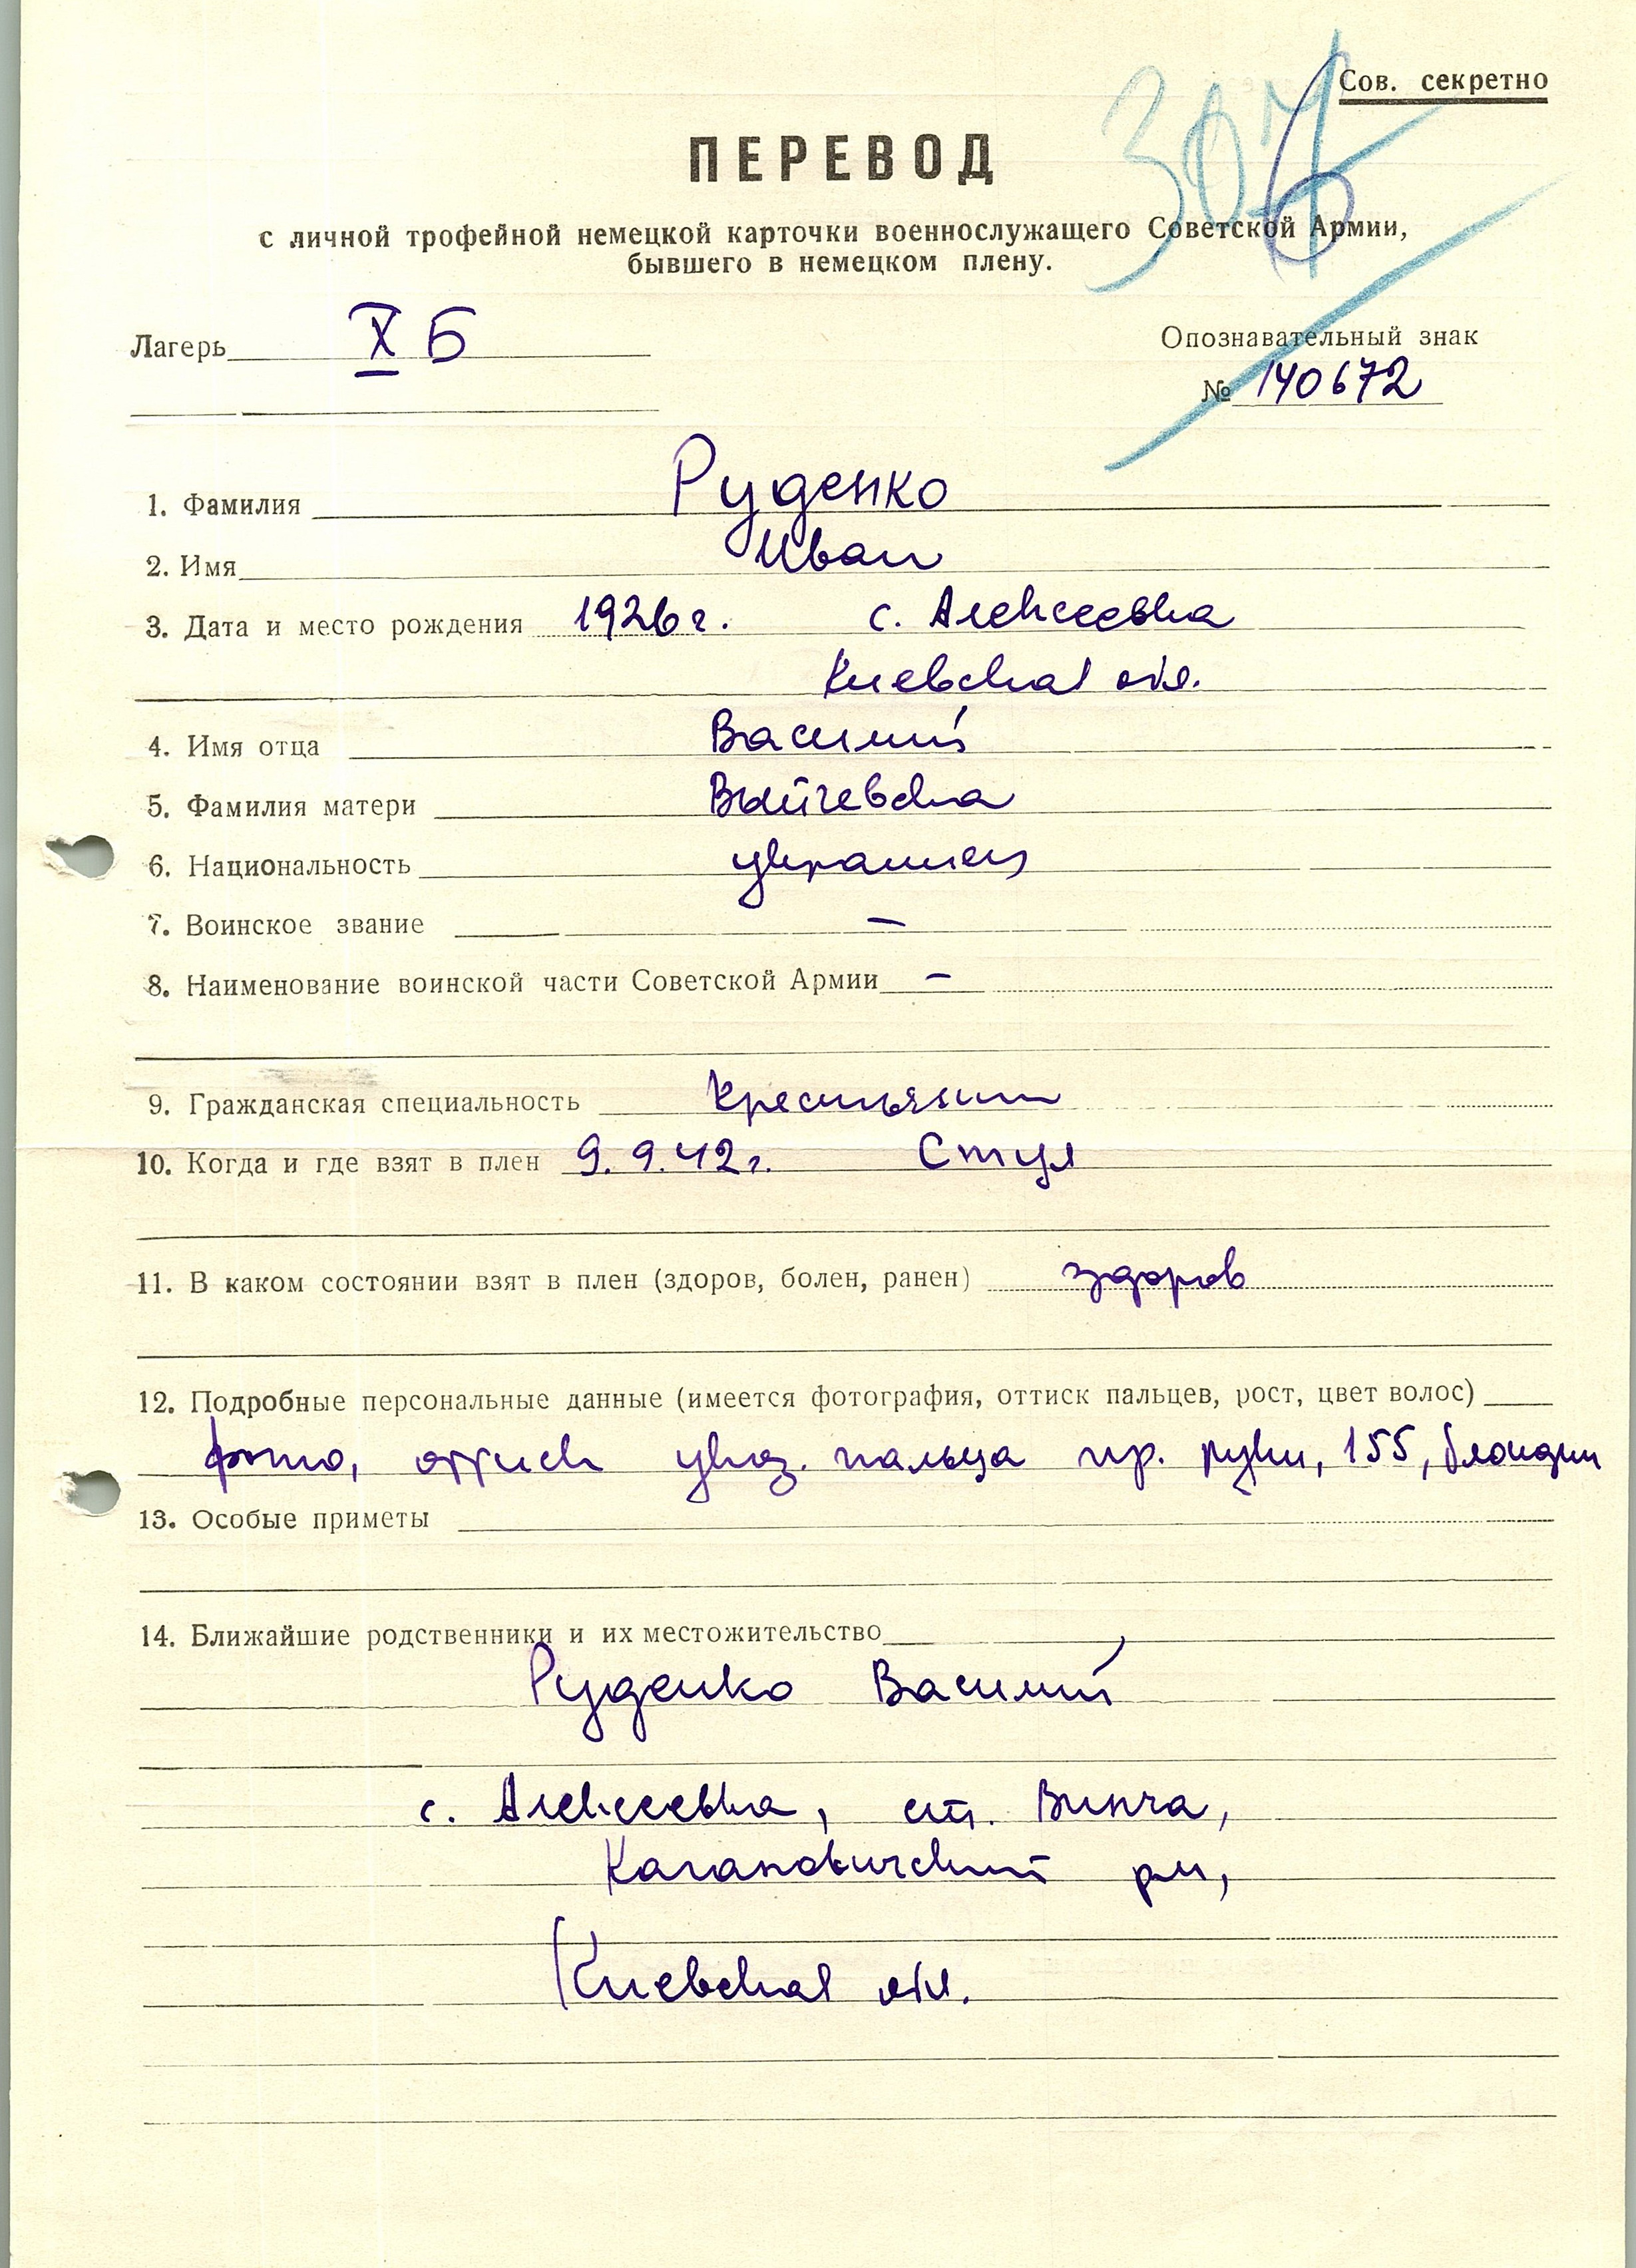 Сов. секретно
ПЕРЕВОД
с личной трофейной немецкой карточки военнослужащего Советской Армии,
бывшего в немецком плену.
Лагерь X Б
Опознавательный знак
№ 140672
1. Фамилия Руденко
2. Имя Иван
3. Дата и место рождения 1926 г. с. Алексеевка
Киевская обл.
4. Имя отца Василий
5. Фамилия матери
6. Национальность украинец
7. Воинское звание –
8. Наименование воинской части Советской Армии –
9. Гражданская специальность крестьянин
10. Когда и где взят в плен 9.9.42 г. Стул
11. В каком состоянии взят в плен (здоров, болен, ранен) здоров
12. Подробные персональные данные (имеется фотография, оттиск пальцев, рост, цвет волос)
фото, оттиск указ. пальца пр. руки, 155, блондин
13. Особые приметы
14. Ближайшие родственники и их местожительство
Руденко Василий
с. Алексеевка, ст. Винча,
Кагановичский р-н,
Киевская обл.